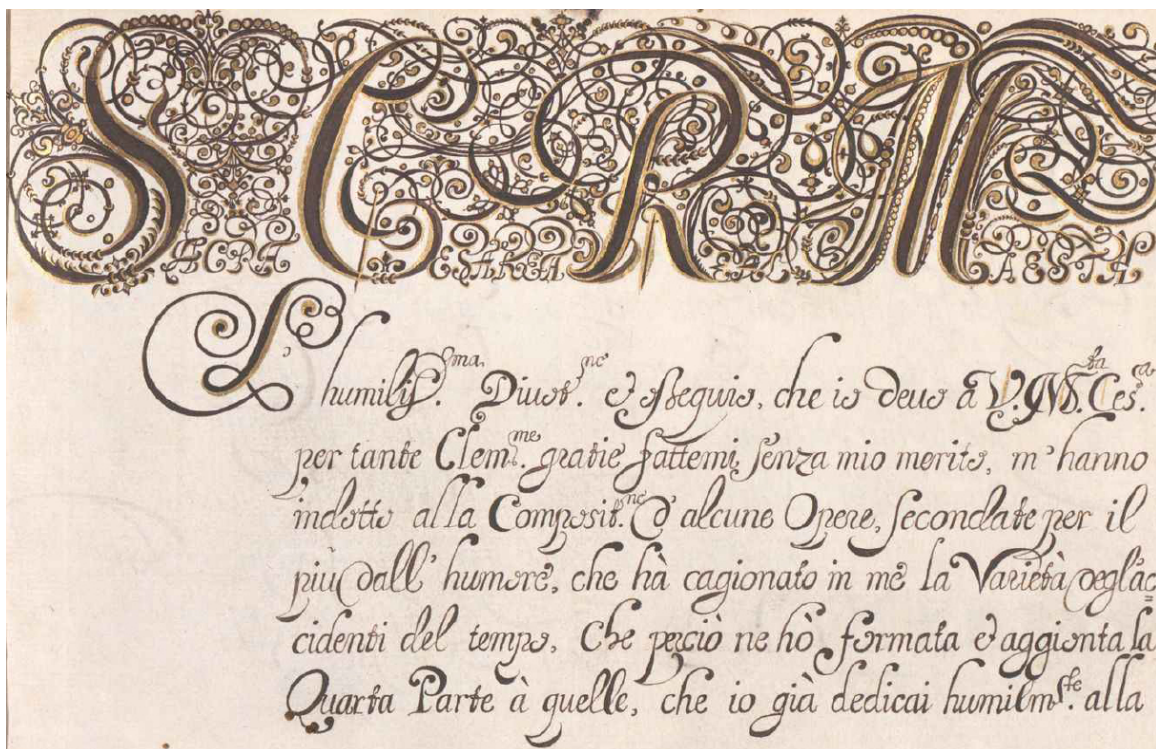 SACRA CESAREA REAL MAESTA
L'humiliss.ma Diuot.ne et Osseguio, che io deuo a V. M.ta Ces.a
per tante Clem.me gratie fattemi, senza mio merito, m'hanno
indotto alla Composit.ne d'alcune Opere, secondate per il
più dall' humore, che hà cagionato in me la Varietà degl'ac=
cidenti del tempo, Che perciò ne hò formata et aggionta la
Quarta Parte à quelle, che io già dedicai humilm.te alla